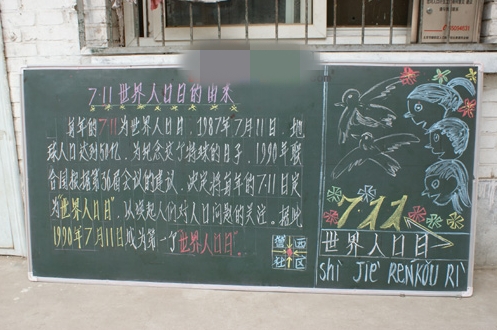 7·11世界人口日的由来
每年的7·11为世界人口日，1987年7月11日，地
球人口达到50亿，为纪念这个特殊的日子，1990年联
合国根据第36届会议的建议，决定将每年的7·11日定
为"世界人口日"，以唤起人们对人口问题的关注。据此
1990年7月11日成为第一个"世界人口日"。
社区
7.11
世界人口日
shì jiè RÉNKǒU RÌ